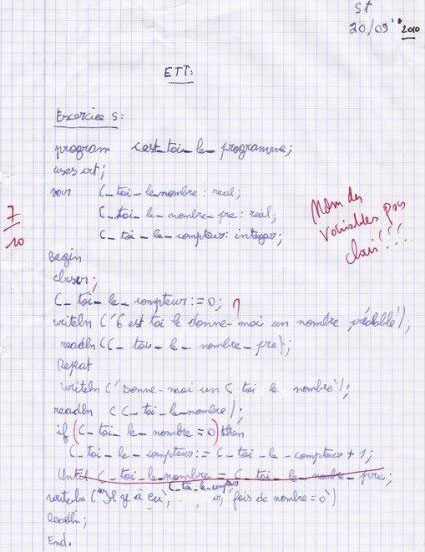 st
20/03 2010
ETT:
Exercice 5:
program c_est_toi_le_programme;
uses crt;
var c_toi_le_nombre : real;
c_toi_le_nombre_pre : real;
c_toi_le_compteur : integer;
Nom des
variables pas
clair!!!
7
10
Begin
clrscr;
c_toi_le_compteur := 0; 1
writeln ('C est toi le donne-moi un nombre préalable');
readln (c_toi_le_nombre_pre);
Repeat
writeln ('Donne-moi un c toi le nombre');
readln (c_toi_le_nombre);
if (c_toi_le_nombre = 0) then
c_toi_le_compteur := c_toi_le_compteur + 1;
Until c_toi_le_nombre = c_toi_le_nombre_pre;
c_toi_le_compteur
writeln ('Il y a eu', , 'fois de nombre = 0')
Readln;
End.